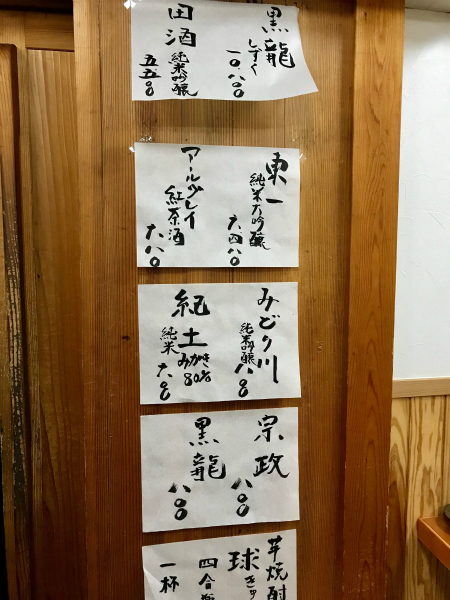 黒龍
しずく
一〇.八〇〇
田酒
純米吟醸
五五〇〇
東一
純米大吟醸
六.四八〇
アールグレイ
紅茶酒
六.八〇
みどり川
純米吟醸
八〇〇
紀土
みがき80%
純米
六〇〇
宗政
八〇〇
黒龍
八〇〇
芋焼酎
球
四合
一杯